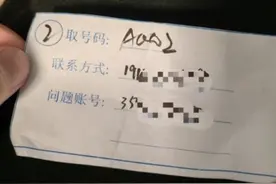 ② 取号码: A002
联系方式: 191
问题账号: 35